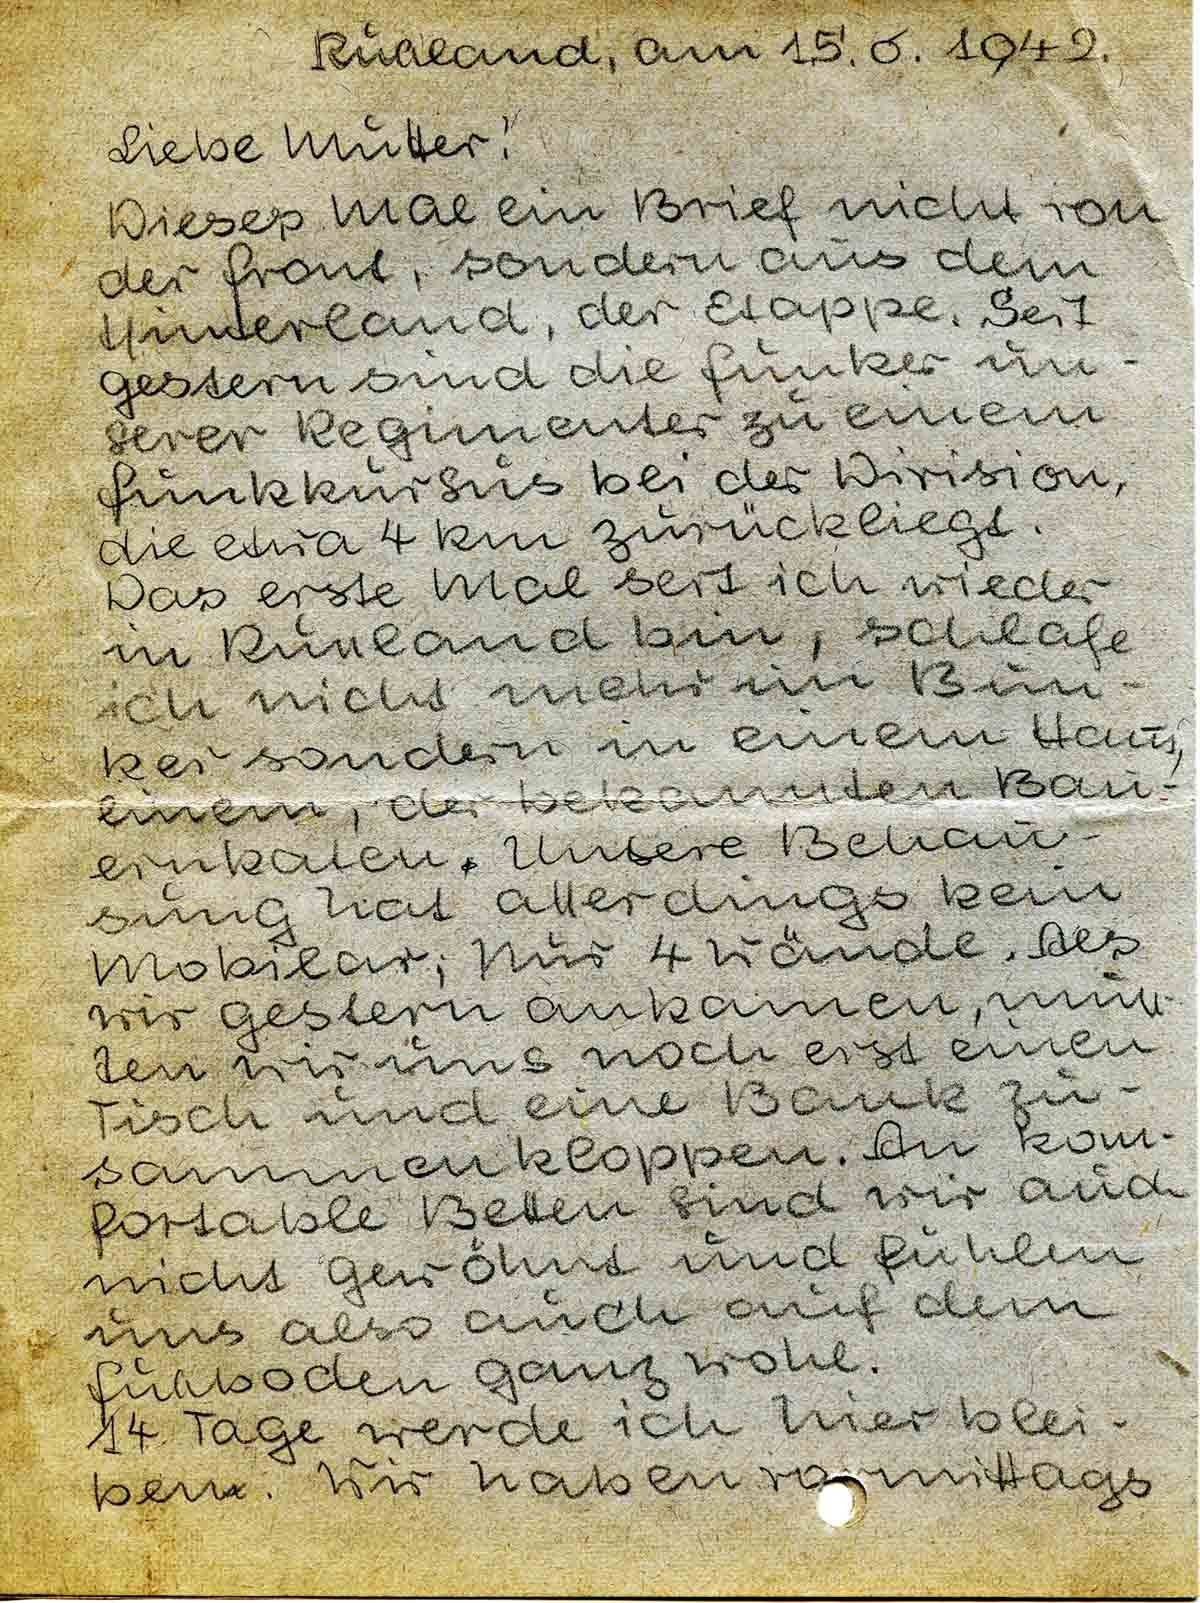 Rußland, am 15. 6. 1942.
Liebe Mutter!
Dieses Mal ein Brief nicht von
der Front, sondern aus dem
Hinterland, der Etappe. Seit
gestern sind die Funker un-
serer Regimenter zu einem
Funkkursus bei der Division,
die etwa 4 km zurückliegt.
Das erste Mal seit ich wieder
in Rußland bin, schlafe
ich nicht mehr im Bun-
ker sondern in einem Haus,
einem, der bekannten Bau-
ernkaten. Unsere Behau-
sung hat allerdings kein
Mobilar; Nur 4 Wände. Als
wir gestern ankamen, muß-
ten wir uns noch erst einen
Tisch und eine Bank zu-
sammenkloppen. An kom-
fortable Betten sind wir auch
nicht gewöhnt und fühlen
uns also auch auf dem
Fußboden ganz wohl.
14 Tage werde ich hier blei-
ben. Wir haben vormittags